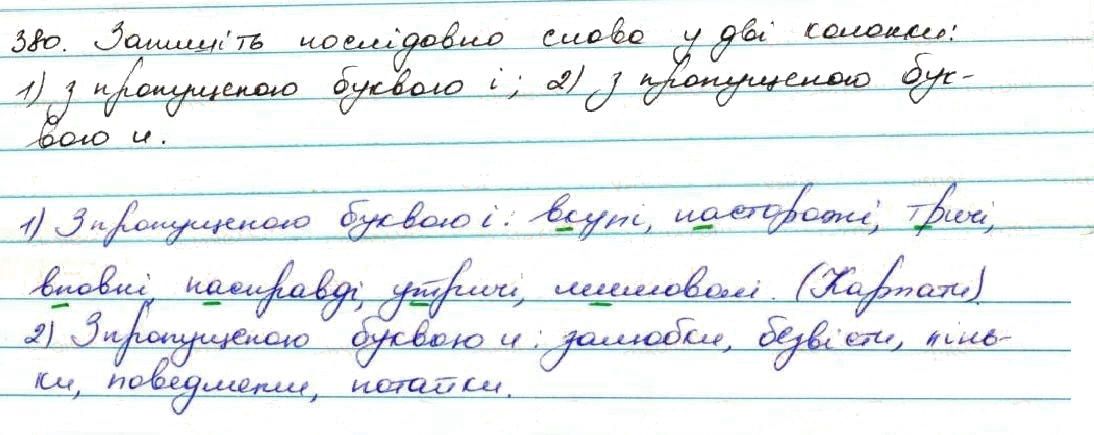 380. Запишіть послідовно слова у дві колонки:
1) з пропущеною буквою і; 2) з пропущеною бук-
вою и.
1) З пропущеною буквою і: всупі, насторожі, тричі,
вповні, насправді, утричі, мимоволі. (Карпати)
2) З пропущеною буквою и: залюбки, безвісти, нішь-
ки, поведмежи, потайки.